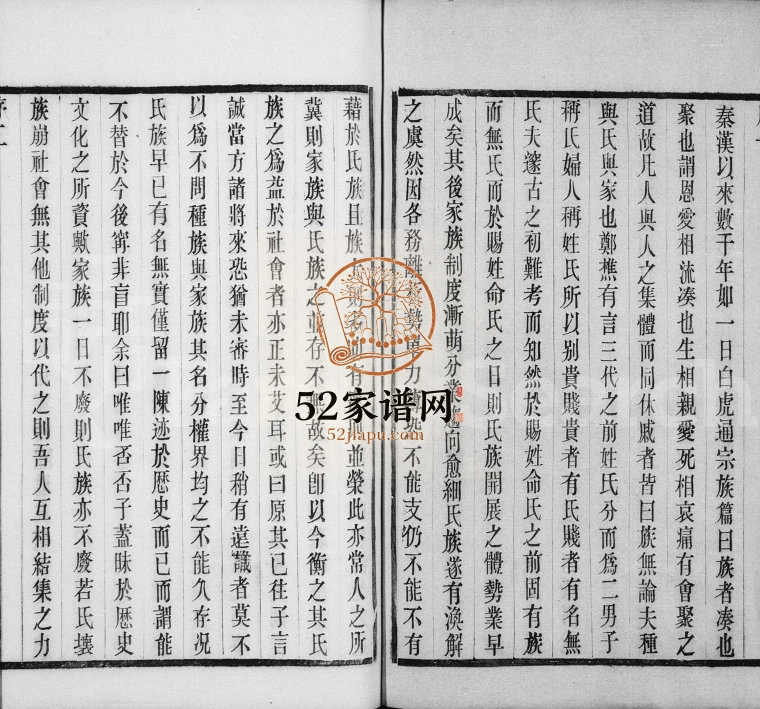 秦漢以來數千年如一日白虎通宗族篇曰族者凑也
聚也謂恩愛相流凑也生相親愛死相哀痛有會聚之
道故凡人與人之集體而同休戚者皆曰族無論夫種
與氏與家也鄭樵有言三代之前姓氏分而爲二男子
稱氏婦人稱姓氏所以别貴賤貴者有氏賤者有名無
氏夫邃古之初難考而知然於賜姓命氏之前固有族
而無氏而於賜姓命氏之日則氏族開展之體勢業早
成矣其後家族制度漸萌分業趨向愈細氏族遂有渙解
之虞然因各務離
力
不能支仍不能不有
藉於氏族且族
並榮此亦常人之所
冀則家族與氏族之並存不
故矣卽以今衡之其氏
族之爲益於社會者亦正未艾耳或曰原其已往子言
誠當方諸將來恐猶未審時至今日稍有遠識者莫不
以爲不問種族與家族其名分權界均之不能久存况
氏族早已有名無實僅留一陳迹於歷史而已而謂能
不替於今後甯非盲耶余曰唯唯否否子蓋昧於歷史
文化之所資歟家族一日不廢則氏族亦不廢若氏壞
族崩社會無其他制度以代之則吾人互相結集之力
序二
52家谱网
52jiapu.com